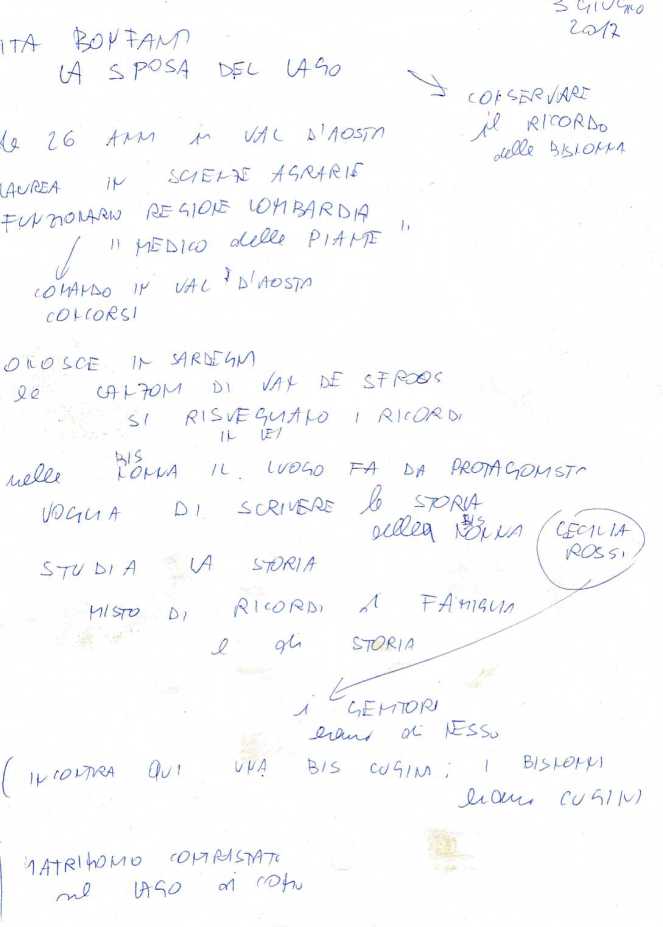 3 GIUGNO
2017
ITA BONFANTI
LA SPOSA DEL LAGO
CONSERVARE
il RICORDO
della BISNONNA
da 26 ANNI in VAL D'AOSTA
LAUREA IN SCIENZE AGRARIE
FUNZIONARIO REGIONE LOMBARDIA
"MEDICO delle PIANTE"
COMANDO IN VAL D'AOSTA
CONCORSI
ONOSCE IN SARDEGNA
le CANZONI DI VAN DE SFROOS
SI RISVEGLIANO I RICORDI
IN LEI
nelle BISNONNA IL LUOGO FA DA PROTAGONISTA
VOGLIA DI SCRIVERE la STORIA
della BISNONNA
CECILIA
ROSSI
STUDIA LA STORIA
MISTO DI RICORDI di FAMIGLIA
e di STORIA
i GENITORI
erano di NESSO
(INCONTRA QUI UNA BIS CUGINA; I BISNONNI
erano CUGINI
MATRIMONIO CONTRASTATO
sul LAGO di COMO